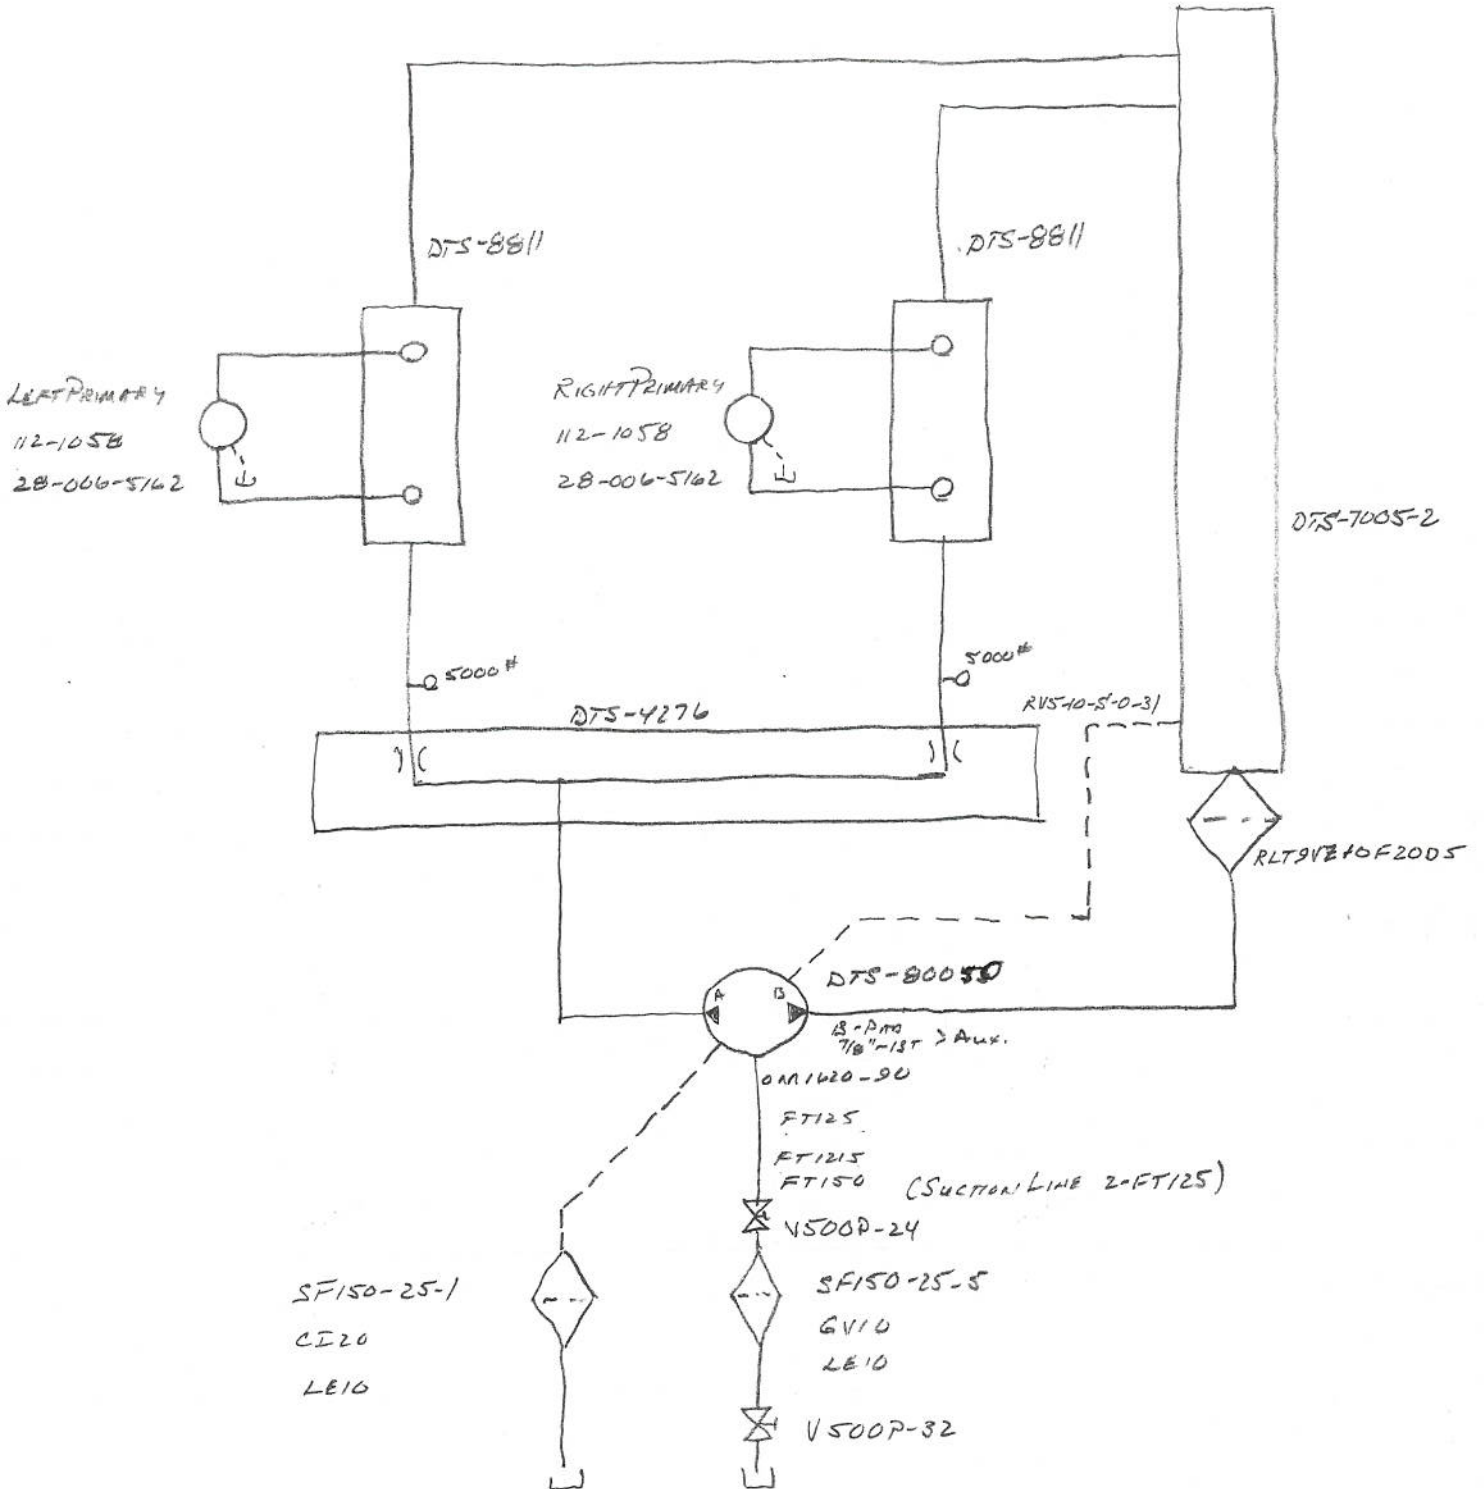 DTS-8811
DTS-8811
LEFT PRIMARY
112-1058
28-006-5162
RIGHT PRIMARY
112-1058
28-006-5162
DTS-7005-2
5000#
5000#
DTS-4276
RV5-10-S-0-31
RLT9VZ10F20D5
DTS-80050
A
B
B-PAD
7/8"-13T > AUX.
OM1620-90
FT125
FT1215
FT150
(SUCTION LINE 2-FT125)
V500P-24
SF150-25-1
CI20
LE10
SF150-25-5
GV10
LE10
V500P-32